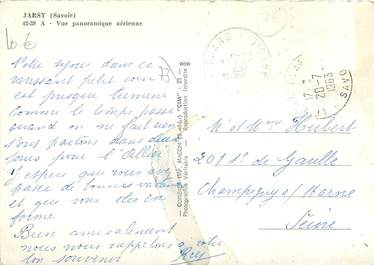 JARSY (Savoie)
43-28 A - Vue panoramique aérienne
Notre séjour dans ce
ravissant petit coin
est presque terminé
Comme le temps passe
quand on ne fait rien
Nous partons dans deux
jours pour l'Allier
J'espère que vous avez
passé de bonnes vacances
et que vous êtes en
forme
Bien amicalement
nous nous rappelons à votre
bon souvenir
COMBIER IMP. MACON (S.-&-L.) "CIM"
Photographie Véritable - Reproduction Interdite
17 H
20-7
1963
SAVOIE
M et Mme Hubert
201 de Gaulle
Champigny s/ Marne
Seine